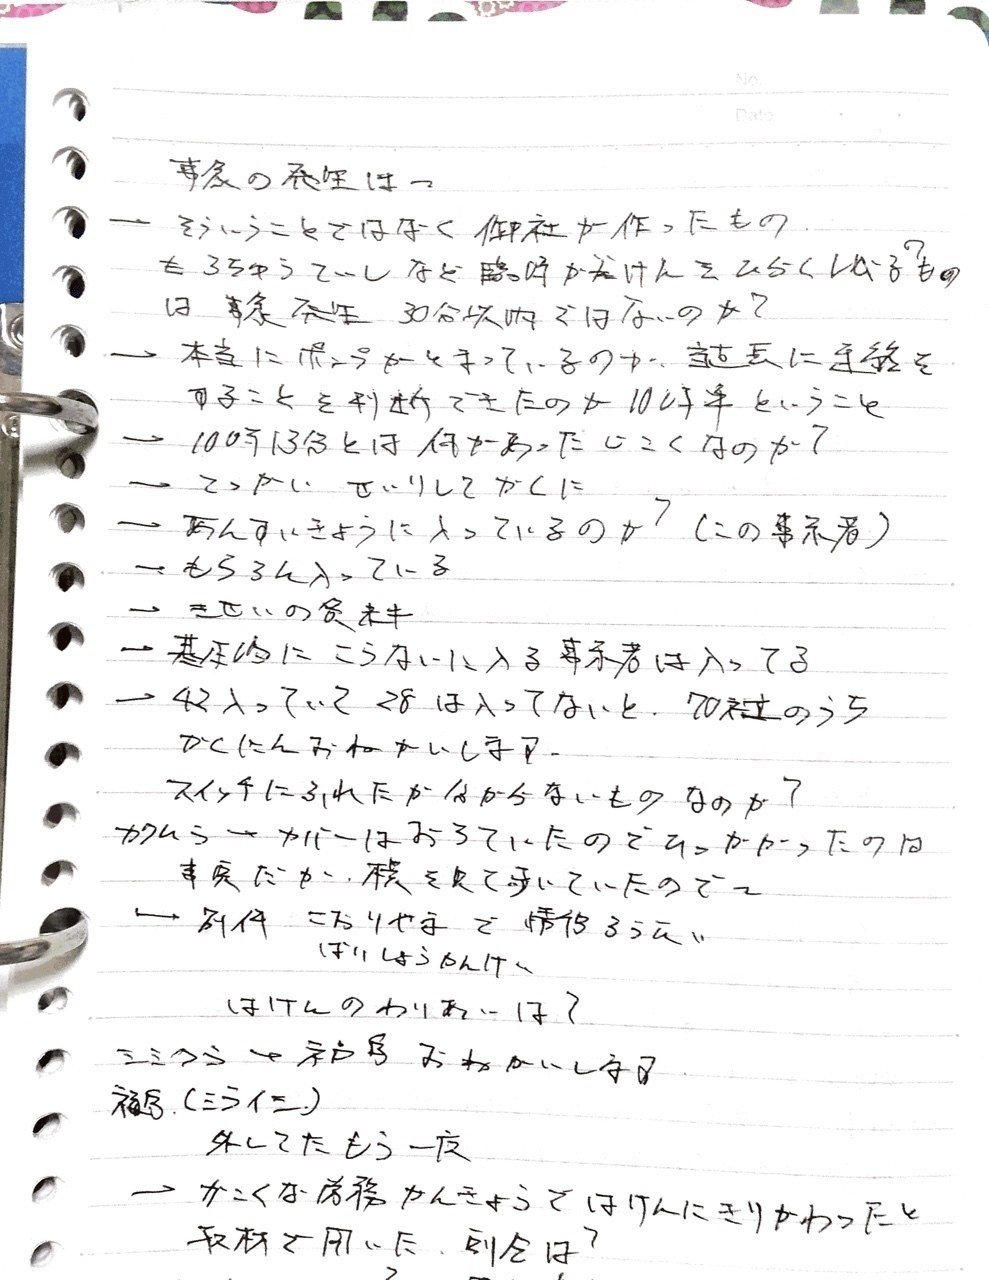 No.
Date
事象の発生は→
→ そういうことではなく御社が作ったもの
もろちゅうていしなど臨時か会けんをひらく しばる?もの
は事象発生30分以内ではないのか?
→ 本当にポンプがとまっているのか、過去に連絡を
することを判断できたのが10時半ということ
→ 10時13分とは何があったじこくなのか?
→ てっかい せいりしてかくに
→ あんすいきょうに入っているのか?(この事業者)
→ もちろん入っている
→ きせいの会社
→ 基本的にこうないに入る事業者は入ってる
→ 42入っていて28は入ってないと、70社のうち
かくにんおねがいします。
スイッチにふれたか分からないものなのか?
→ カバーはおろていたのでひっかかったのは
事実だが、横を見て歩いていたので〜
→ 別件 こおりやまで情保ろうえい
ばいしょうかんけい
はけんのわりあいは?
→ おねがいします
福島(ミライニ)
外してたもう一度
→ かこくな労務かんきょうではけんにきりかわったと
取材で聞いた、割合は?